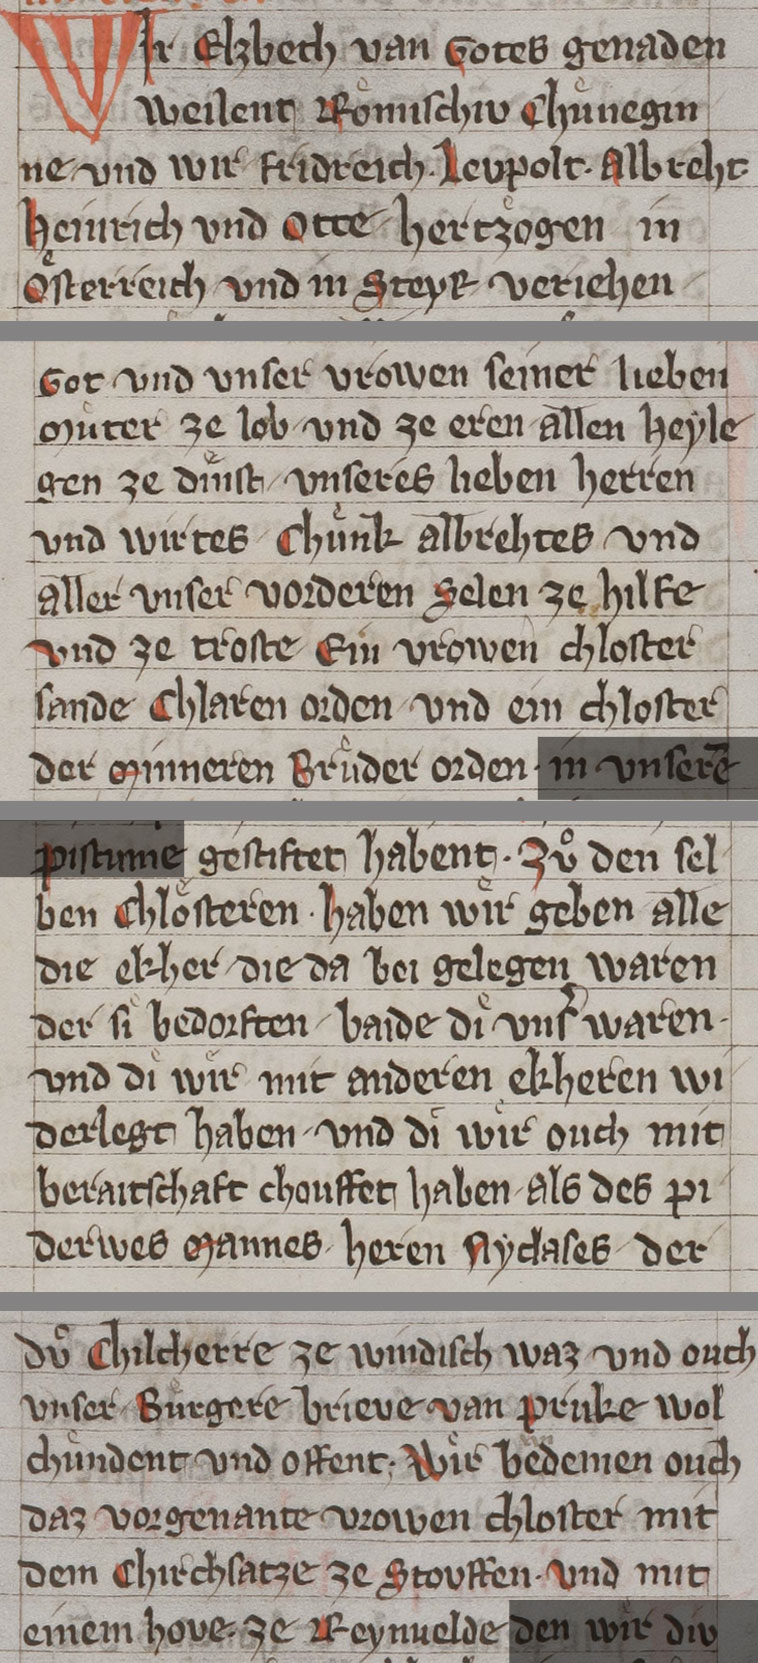 Wir Elzbeth van Gotes genaden
weilent Rͦmischiv Chuͤnegin
ne vnd wir fridreich. Levpolt. Albreht
heinrich vnd Otte hertzogen in
Oͤsterreich vnd in Steyr veriehen
Got vnd vnser vrowen seiner lieben
muͦter ze lob vnd ze eren allen heyle
gen ze dinst vnseres lieben herren
vnd wirtes Chuͤnk albrehtes vnd
aller vnser vorderen Selen ze hilfe
vnd ze troste Ein vrowen chloster
sande Chlaren orden vnd ein chloster
der Minneren Bruͤder orden. in vnserē
pistume gestiftet habent. Zuͦ den sel
ben Chloͤsteren. haben wir geben alle
die ekher die da bei gelegen waren
der si bedorften baide di vnser waren.
vnd di wir mit anderen ekheren wi
derlegt haben vnd di wir ouch mit
beraitschaft chouffet haben als des pi
derwes Mannes heren Nyclases der
duͦ Chilcherre ze windisch waz vnd ouch
vnser Burgere brieve van pruke wol
chuͤndent vnd offent. Wir bedemen ouch
daz vorgenante vrowen chloster mit
dem Chirchsatze ze Stovffen. vnd mit
einem hove. ze Reynuelde den wir div